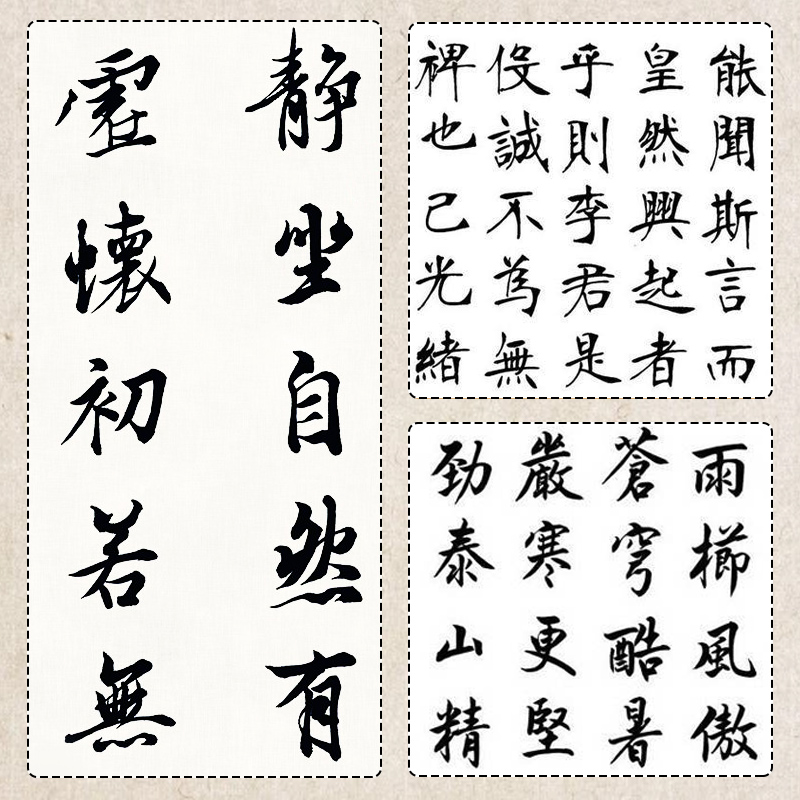 静坐自然有
虚懷初若無
能聞斯言而
皇然興起者
乎則李君是
役誠不為無
裨也已光緒
雨櫛風傲
蒼穹酷暑
嚴寒更堅
勁泰山精